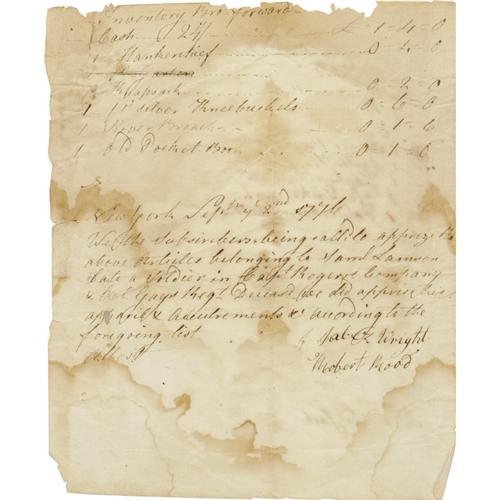 Inventory Bro. forward
Cash 24/ £ - 1 - 4 - 0
1 Hankerchief 0 - 4 - 0
1 Knapsack 0 - 2 - 0
1 pr silver Kneebuckels 0 - 6 - 0
1 Silver Broach 0 - 1 - 6
1 old Pocket Book 0 - 1 - 0
New York Septr ye 2nd 1776
We the Subscribers being called to apprize the
above Articles belonging to Saml Lamson
Late a Soldier in Capt Rogers Company
& Col Gays Regt Deceasd we did apprize his
aparril & Accutrements &c according to the
foregoing List
attest
Wright
Robert Hood